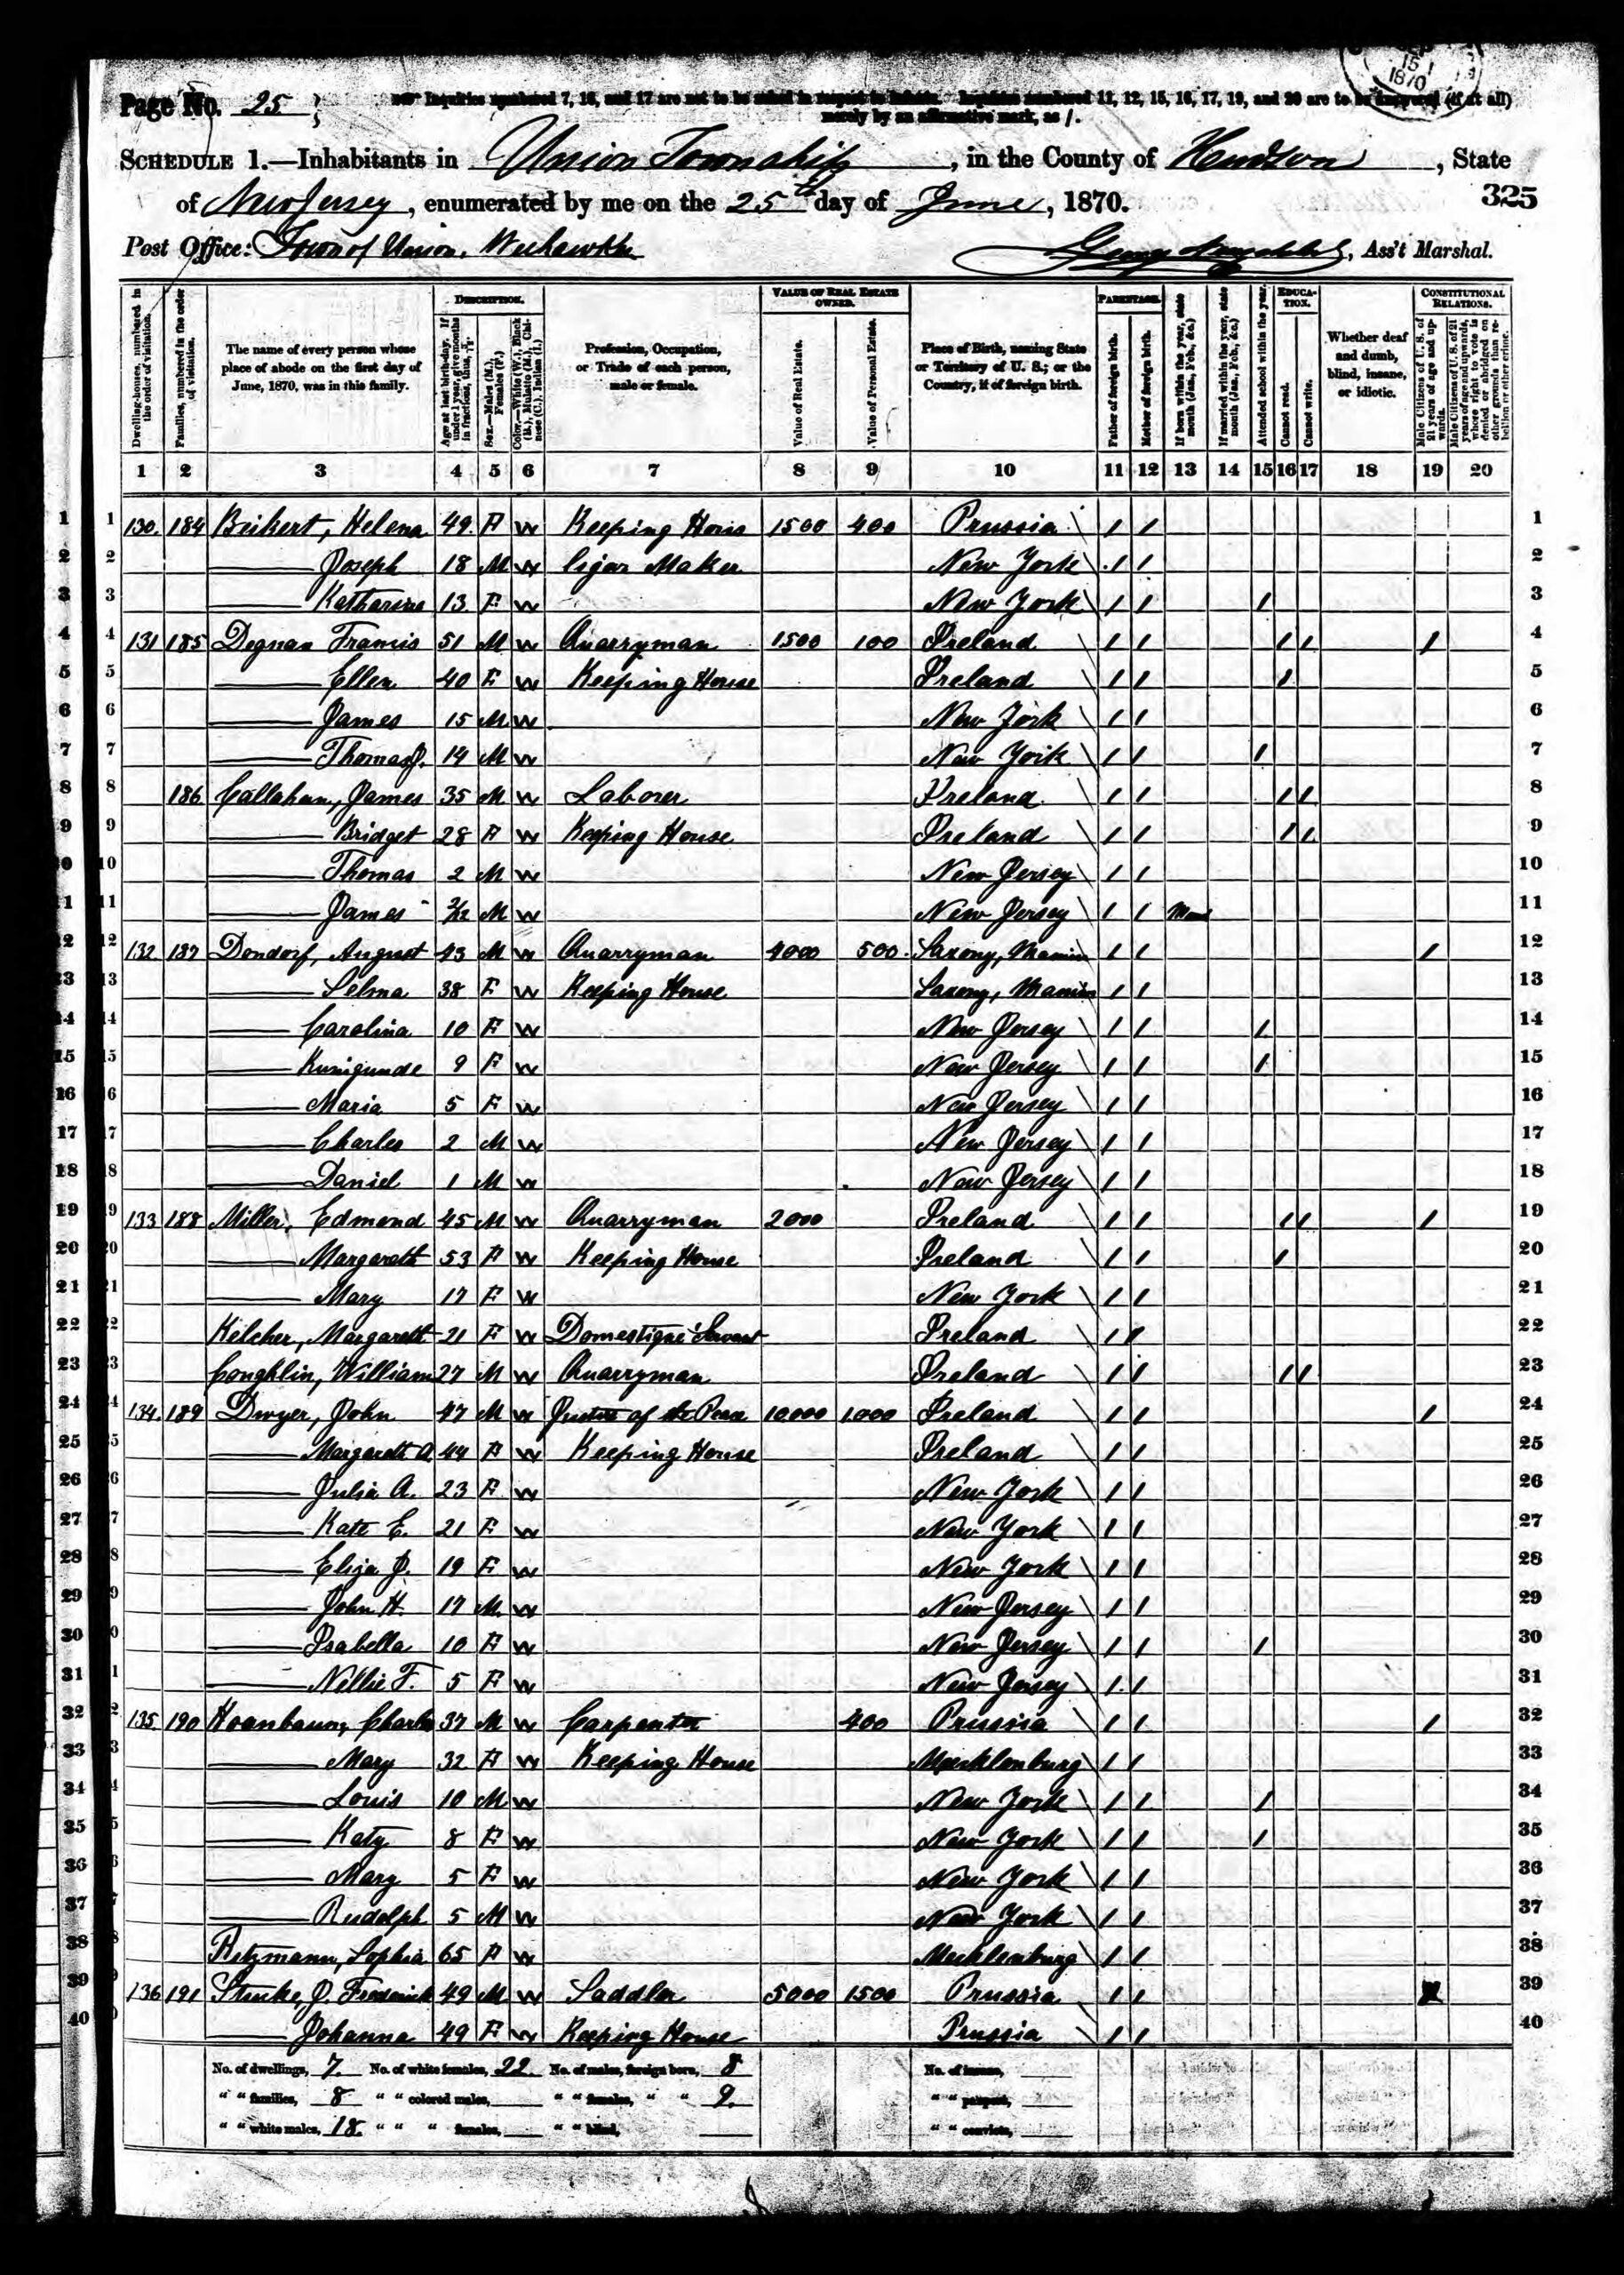 15
1870
Page No. 25
Inquiries numbered 7, 16, and 17 are not to be asked in respect to infants. Inquiries numbered 11, 12, 15, 16, 17, 19, and 20 are to be answered (if at all)
merely by an affirmative mark, as /.
SCHEDULE 1.—Inhabitants in Union Township, in the County of Hudson, State
of New Jersey, enumerated by me on the 25th day of June, 1870.
325
Post Office: Town of Union, Weehawken
, Ass't Marshal.
Dwelling-houses, numbered in the order of visitation. Families, numbered in the order of visitation. The name of every person whose place of abode on the first day of June, 1870, was in this family. DESCRIPTION. Age at last birth-day. If under 1 year, give months in fractions, thus, 3/12. Sex.—Males (M.), Females (F.) Color.—White (W.), Black (B.), Mulatto (M.), Chinese (C.), Indian (I.) Profession, Occupation, or Trade of each person, male or female. VALUE OF REAL ESTATE OWNED. Value of Real Estate. Value of Personal Estate. Place of Birth, naming State or Territory of U. S.; or the Country, if of foreign birth. PARENTAGE. Father of foreign birth. Mother of foreign birth. If born within the year, state month (Jan., Feb., &c.) If married within the year, state month (Jan., Feb., &c.) Attended school within the year. EDUCATION. Cannot read. Cannot write. Whether deaf and dumb, blind, insane, or idiotic. CONSTITUTIONAL RELATIONS. Male Citizens of U. S. of 21 years of age and upwards. Male Citizens of U. S. of 21 years of age and upwards, whose right to vote is denied or abridged on other grounds than rebellion or other crime.
1 2 3 4 5 6 7 8 9 10 11 12 13 14 15 16 17 18 19 20
1 1 130. 184 Helena 49. F W Keeping Hous 1500 400 Prussia / / 1
2 2 —— Joseph 18 M W Cigar Maker New York / / 2
3 3 —— Katharine 13 F W New York / / / 3
4 4 131 185 Degnan Francis 51 M W Quarryman 1500 100 Ireland / / / / / 4
5 5 —— Ellen 40 F W Keeping House Ireland / / / 5
6 6 —— James 15 M W New York / / 6
7 7 —— Thomas J. 14 M W New York / / / 7
8 8 186 Callahan, James 35 M W Laborer Ireland / / / / 8
9 9 —— Bridget 28 F W Keeping House Ireland / / / / 9
10 10 —— Thomas 2 M W New Jersey / / 10
11 11 —— James M W New Jersey / / 11
12 12 132 187 Dondorf, August 43 M W Quarryman 4000 500 Saxony, / / / 12
13 13 —— Selma 38 F W Keeping House Saxony, / / 13
14 14 —— Carolina 10 F W New Jersey / / / 14
15 15 —— Kunigunde 9 F W New Jersey / / / 15
16 16 —— Maria 5 F W New Jersey / / 16
17 17 —— Charles 2 M W New Jersey / / 17
18 18 —— Daniel 1 M W New Jersey / / 18
19 19 133 188 Miller, Edmond 45 M W Quarryman 2000 Ireland / / / / / 19
20 20 —— Margareth 53 F W Keeping House Ireland / / / 20
21 21 —— Mary 17 F W New York / / 21
22 22 Kelcher, Margareth 21 F W Domestique Servant Ireland / / 22
23 23 Coughlin, William 27 M W Quarryman Ireland / / / / 23
24 24 134. 189 Dwyer, John 47 M W Justice of the Peace 10000 1000 Ireland / / / 24
25 25 —— Margareth A. 44 F W Keeping House Ireland / / 25
26 26 —— Julia A. 23 F W New York / / 26
27 27 —— Kate E. 21 F W New York / / 27
28 28 —— Eliza J. 19 F W New York / / 28
29 29 —— John H. 17 M. W New Jersey / / 29
30 30 —— Isabella 10 F W New Jersey / / / 30
31 31 —— Nellie F. 5 F W New Jersey / / 31
32 32 135. 190 Charles 37 M W Carpenter 400 Prussia / / / 32
33 33 —— Mary 32 F W Keeping House Mecklenburg / / 33
34 34 —— Louis 10 M W New York / / / 34
35 35 —— Katy 8 F W New York / / / 35
36 36 —— Mary 5 F W New York / / 36
37 37 —— Rudolph 5 M W New York / / 37
38 38 Sophia 65 F W Mecklenburg / / 38
39 39 136 191 J. Frederick 49 M W Saddler 5000 1500 Prussia / / 39
40 —— Johanna 49 F W Keeping House Prussia / / 40
No. of dwellings, 7. No. of white females, 22. No. of males, foreign born, 8 No. of insane,
" " families, 8 " " colored males, " " females, " " 9. " " paupers,
" " white males, 18. " " " females, " " blind, " " convicts,